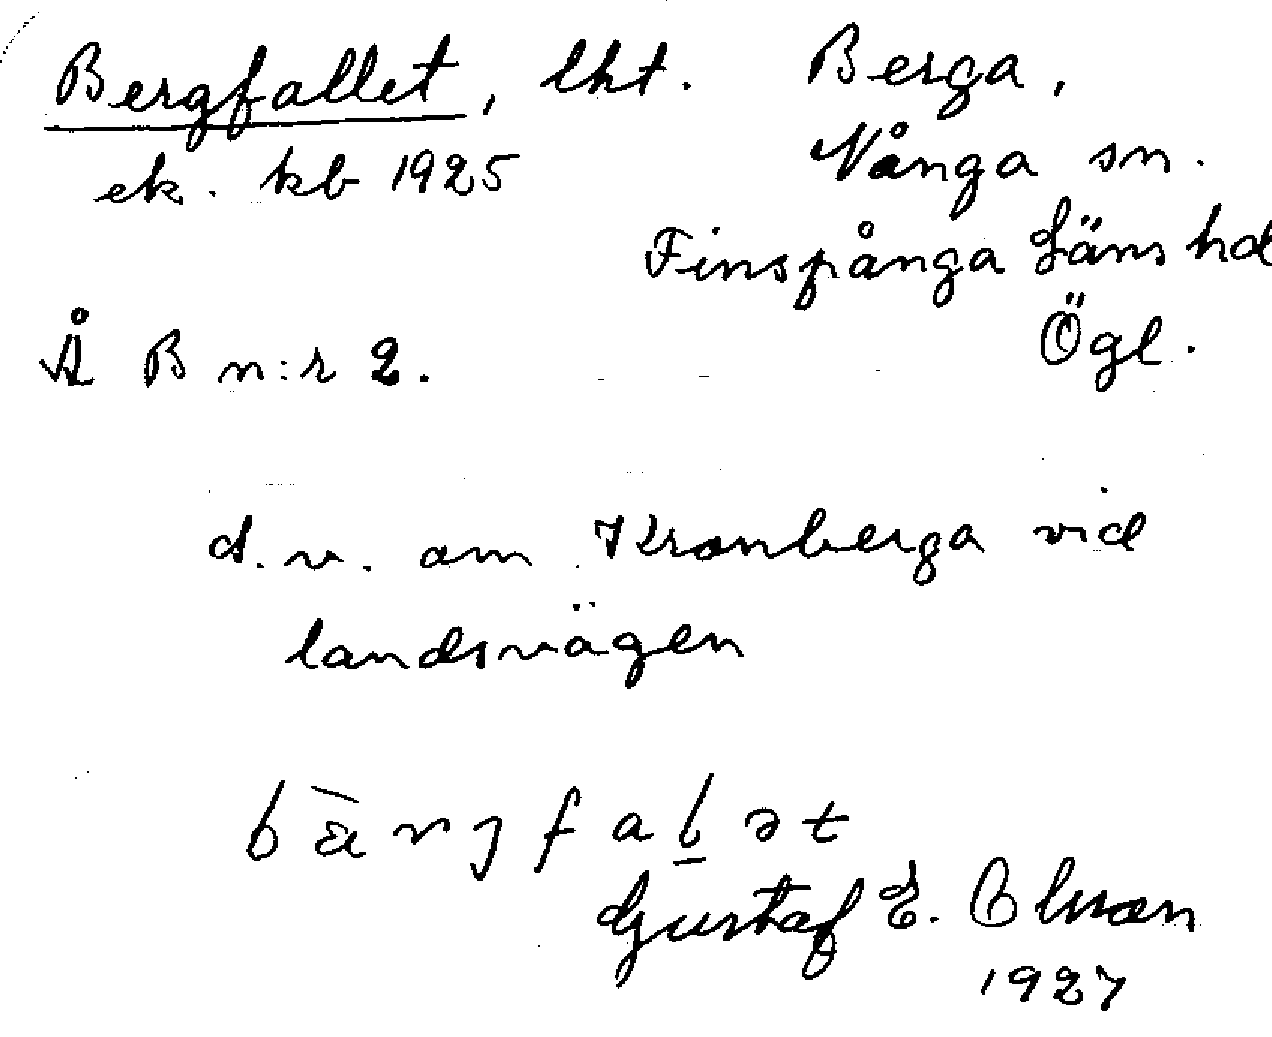 Bergfallet, lht. Berga,
ek. kb 1925 Vånga sn.
Finspånga Läns hd
Å B n:r 2. Ögl.
d.v. om Kronberga vid
landsvägen
Gustaf E. Olsson
1927